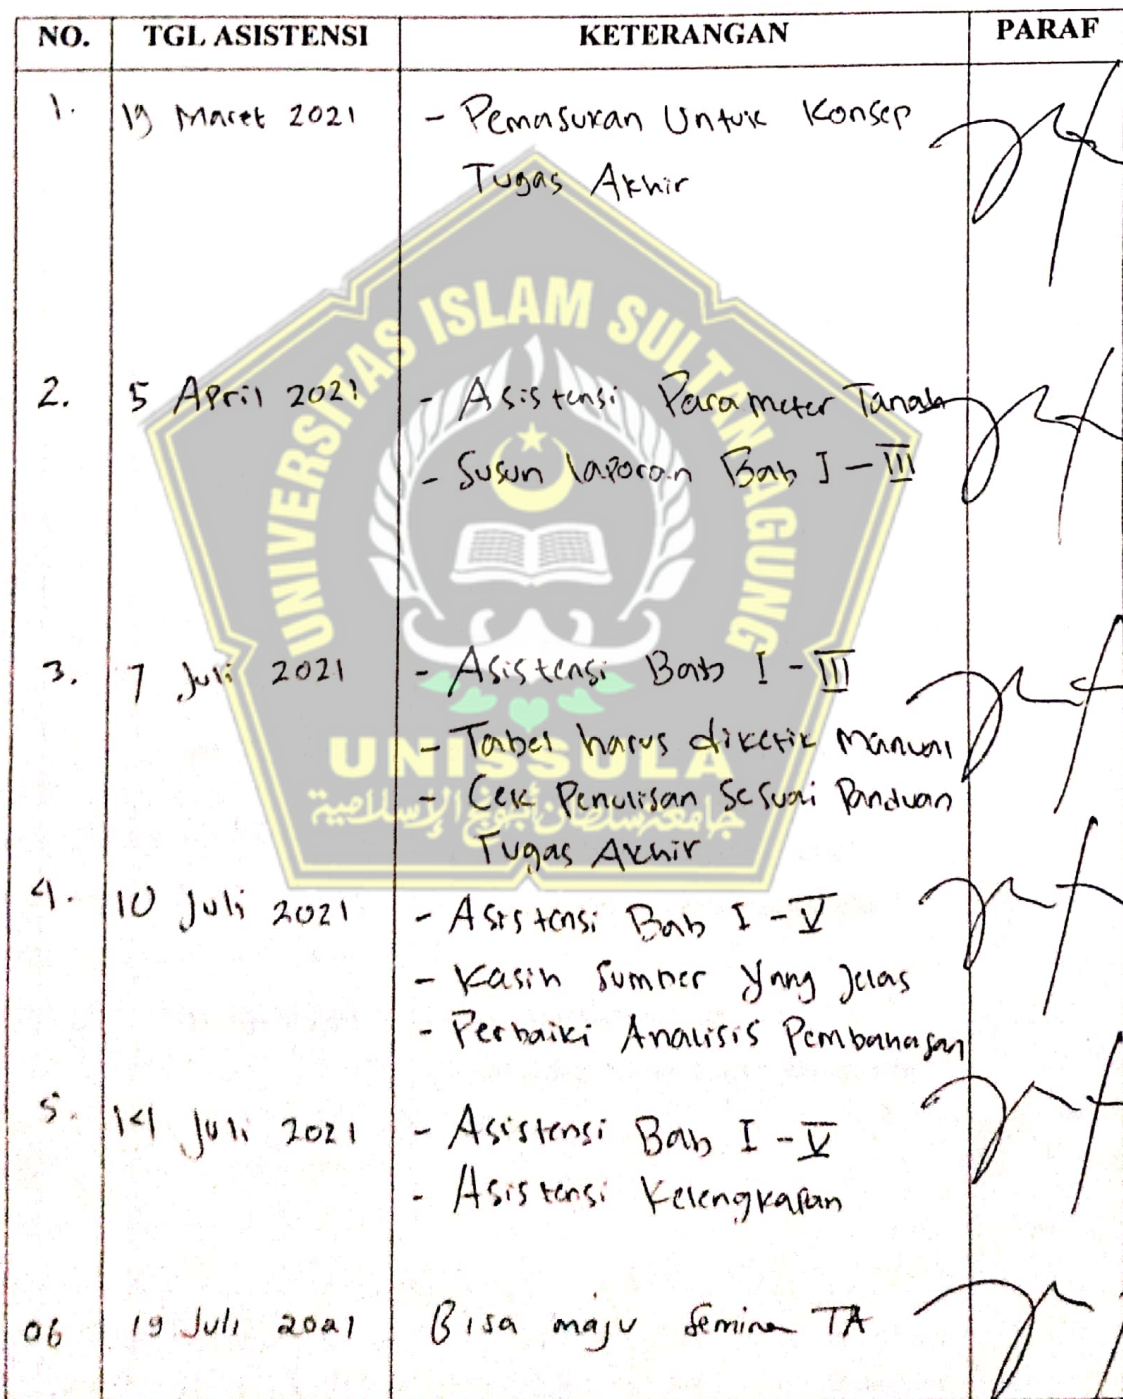 NO. TGL ASISTENSI KETERANGAN PARAF
1. 19 Maret 2021 - Pemasukan Untuk Konsep
Tugas Akhir
2. 5 April 2021 - Asistensi Parameter Tanah
- Susun laporan Bab I - III
3. 7 Juli 2021 - Asistensi Bab I - III
- Tabel harus diketik manual
- Cek Penulisan Sesuai Panduan
Tugas Akhir
4. 10 Juli 2021 - Asistensi Bab I - V
- Kasih Sumber Yang Jelas
- Perbaiki Analisis Pembahasan
5. 14 Juli 2021 - Asistensi Bab I - V
- Asistensi Kelengkapan
06 19 Juli 2021 Bisa maju Seminar TA
UNIVERSITAS ISLAM SULTAN AGUNG
UNISSULA
جامعة سلطان أجونج الإسلامية